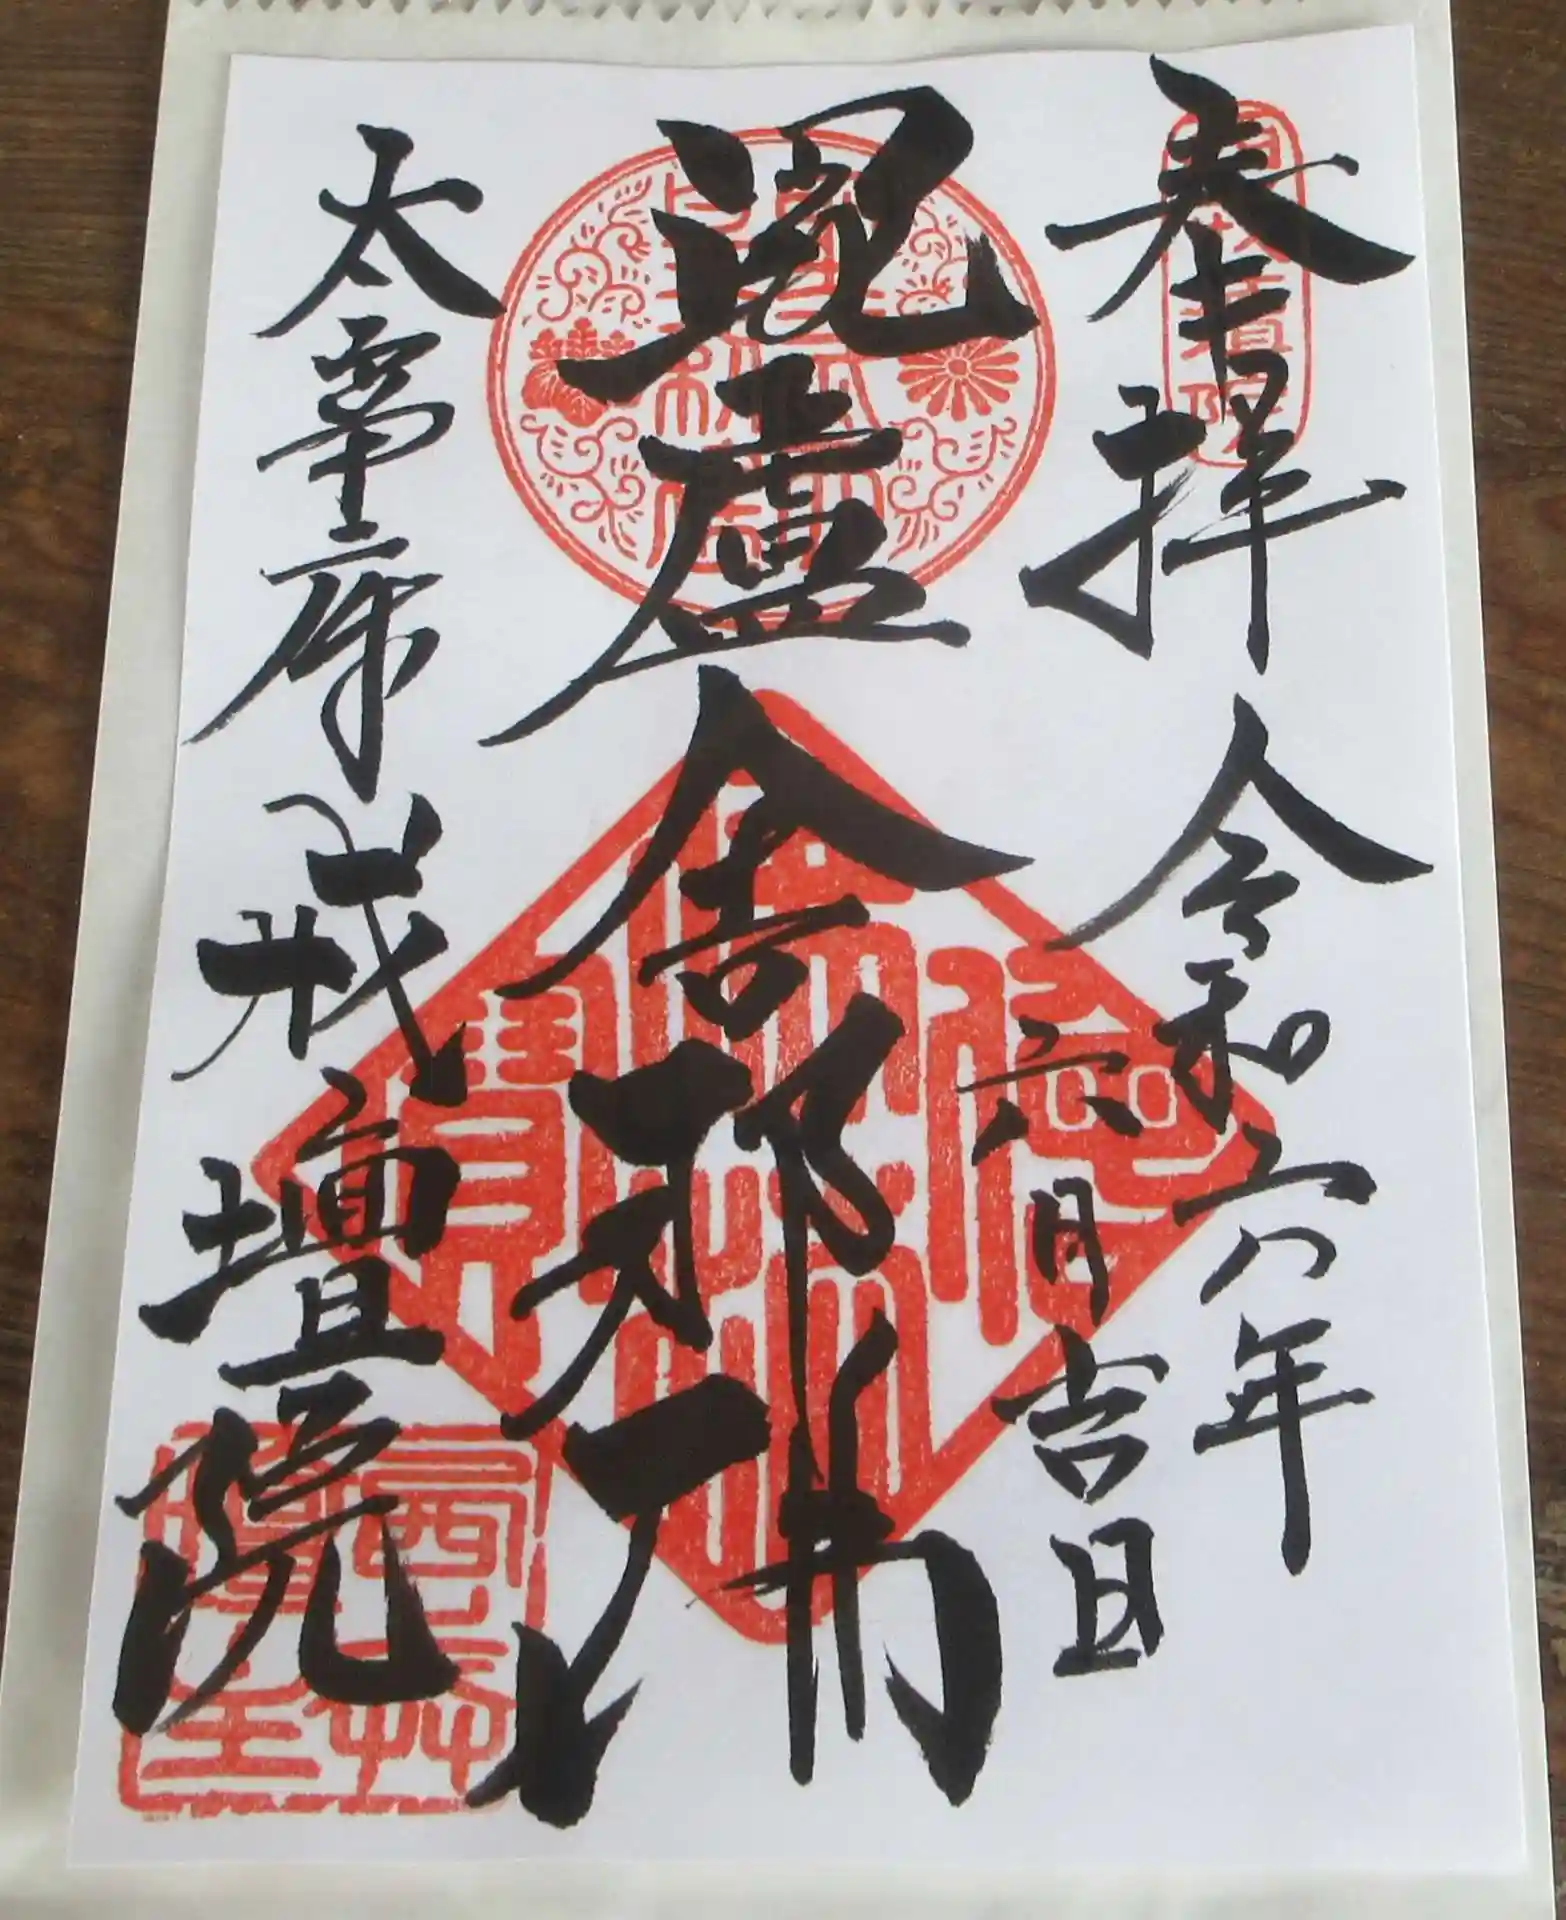 奉拝
令和六年
六月吉日
毘盧舎那佛
太宰府戒壇院
佛法僧寶